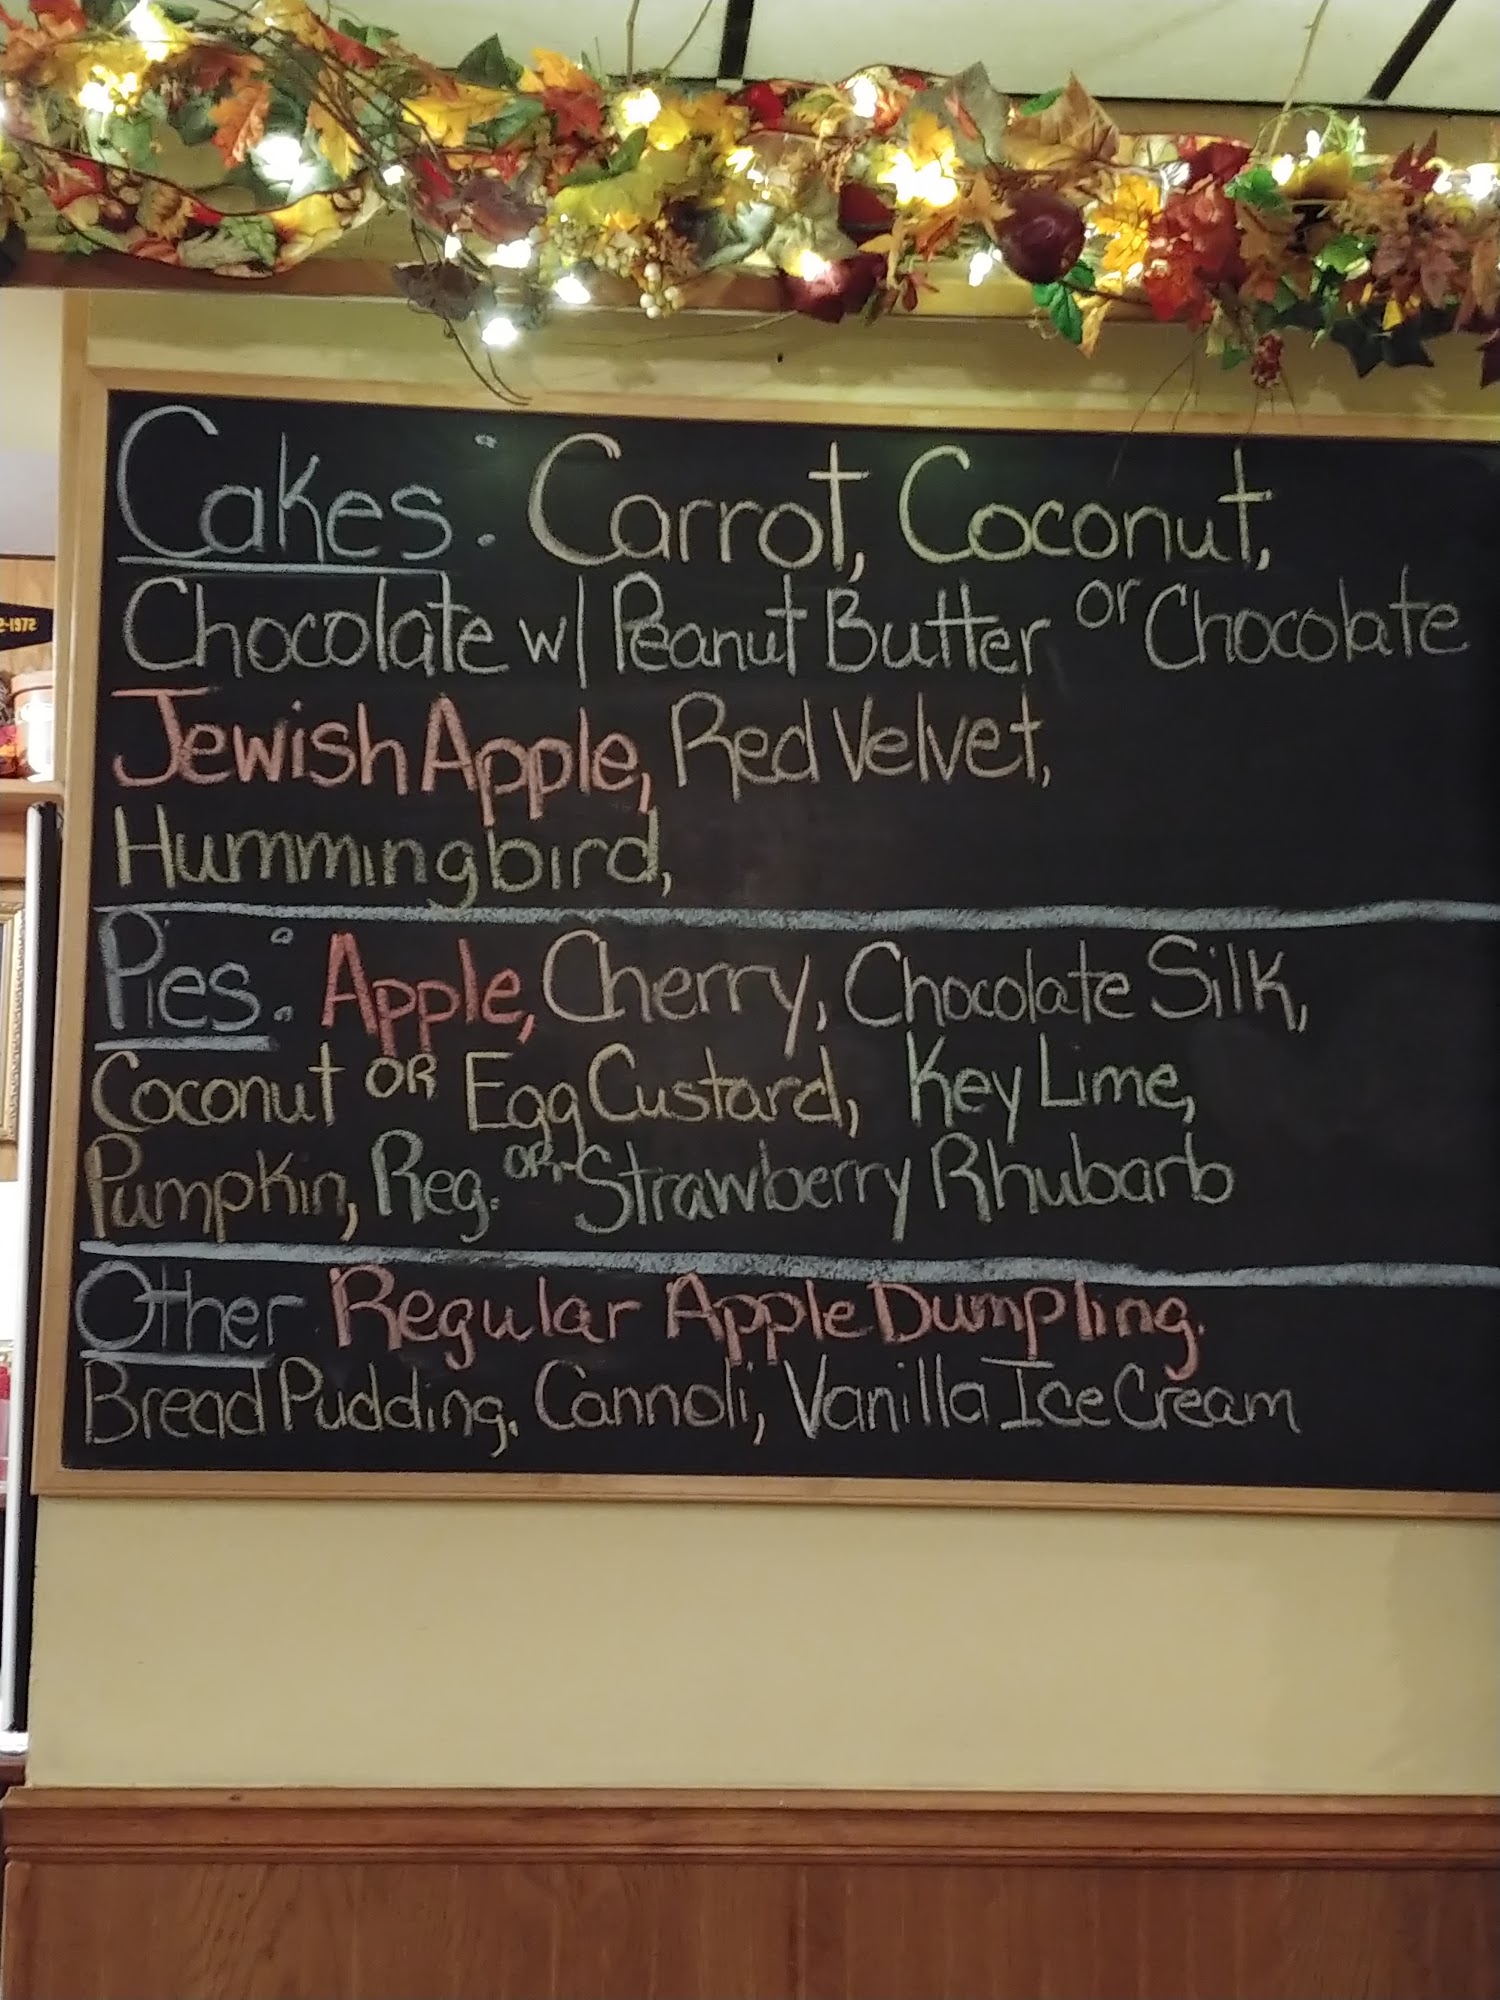 Cakes: Carrot, Coconut,
Chocolate w/ Peanut Butter or Chocolate
Jewish Apple, Red Velvet,
Hummingbird,
Pies: Apple, Cherry, Chocolate Silk,
Coconut OR Egg Custard, Key Lime,
Pumpkin, Reg. OR Strawberry Rhubarb
Other Regular Apple Dumpling,
Bread Pudding, Cannoli, Vanilla Ice Cream